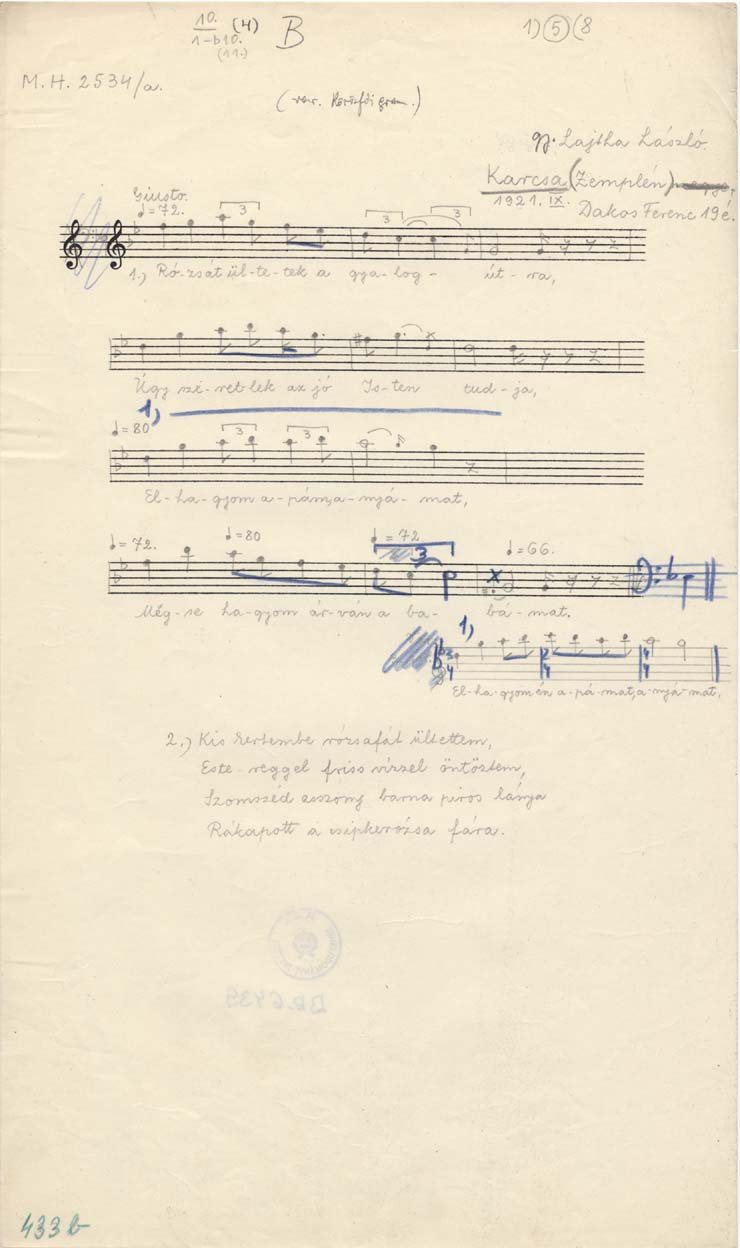 10. (4) B 1) 5 (8
1-b10.
(11.)
M. H. 2534/a.
(var.
gy. Lajtha László.
Karcsa (Zemplén) megye,
1921. IX. Dakos Ferenc 19 é.
Giusto.
♩= 72. 3 3 3
1.) Ró-zsát ül-te-tek a gya-log- út-ra,
Úgy sze-ret-lek az jó Is-ten tud-ja,
1,)
♩= 80 3 3
El-ha-gyom a-pám,a-nyá-mat,
♩= 72. ♩= 80 ♩= 72 3 ♩= 66.
Még-se ha-gyom ár-ván a ba-bá-mat.
1,)
3 4 2 4 4 4
El-ha-gyom én a-pá-mat,a-nyá-mat,
2.) Kis kertembe rózsafát ültettem,
Este-reggel friss vízzel öntöztem,
Szomszéd asszony barna piros lánya
Rákapott a csipkerózsa fára.
BR.6439
433 b